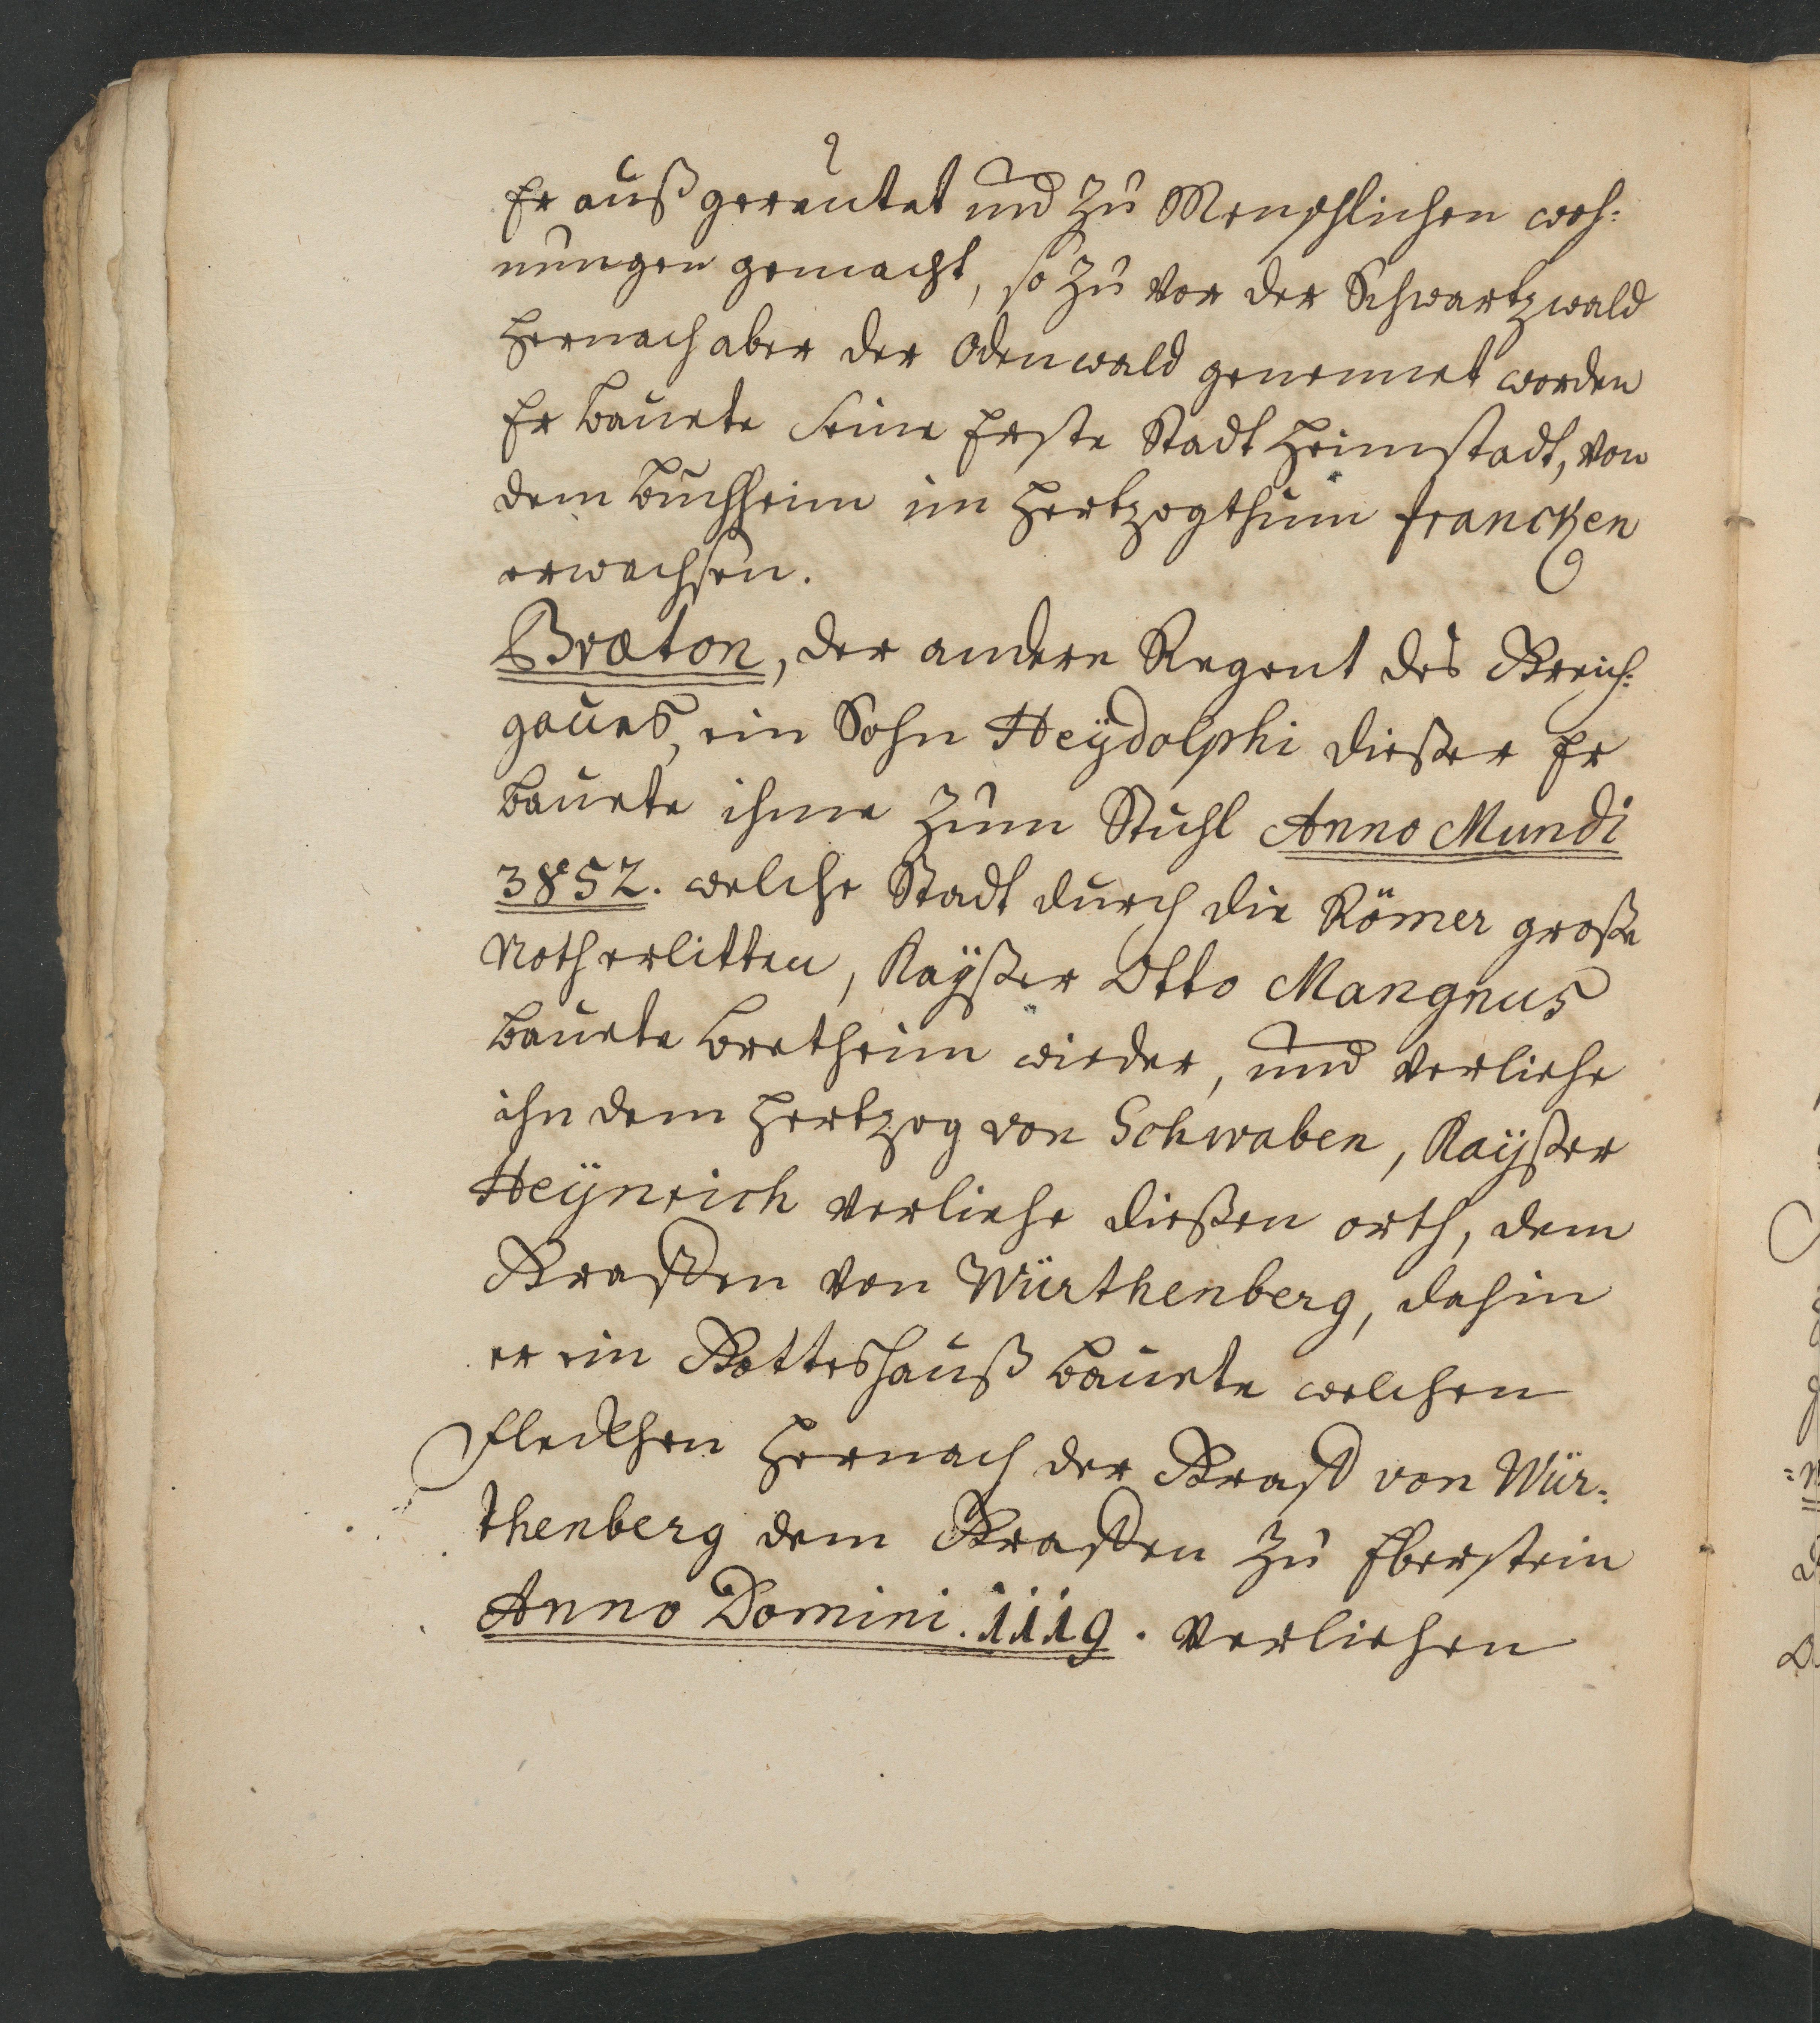 Er außgereutet und zu Menschlichen woh:
nungen gemacht, so zu vor der Schwartzwald
hernach aber der Odenwald genennet worden
Er bauete seine Erste Stadt Heimstadt, von
dem Buchheim im Hertzogthum Francken
erwachsen.
Bræton, der andere Regent des Kreich:
gaues, ein Sohn Heÿdolphi dießer Er
bauete ihme zum Stuhl Anno Mundi
3852. welche Stadt durch die Römer große
Noth erlitten, Kaÿßer Otto Mangnus
bauete Bretheim wieder, und verliehe
ihn dem Hertzog von Schwaben, Kaÿßer
Heÿnrich verliehe dießen orth, dem
Graffen von Würthenberg, dahin
er ein Gotteshauß bauete welchen
Fleckhen hernach der Graff von Wür:
thenberg dem Graffen zu Eberstein
Anno Domini. 1119. verliehen